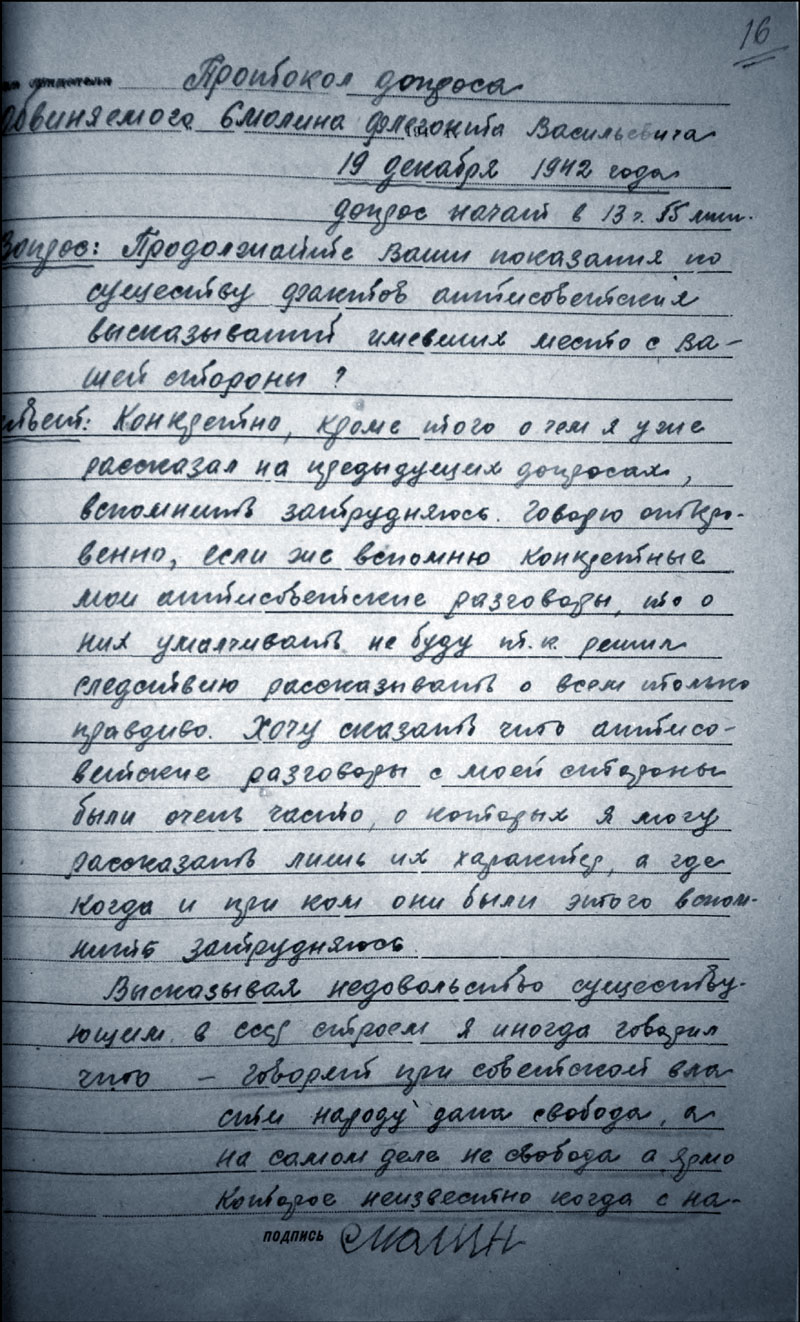 16
Протокол допроса
Обвиняемого Смолина Флегонта Васильевича
19 декабря 1942 года
допрос начат в 13 ч. 55 мин.
Вопрос: Продолжайте Ваши показания по
существу фактов антисоветских
высказываний имевших место с ва-
шей стороны?
Ответ: Конкретно, кроме того о чем я уже
рассказал на предыдущих допросах,
вспомнить затрудняюсь. Говорю откро-
венно, если же вспомню конкретные
мои антисоветские разговоры, то о
них умалчивать не буду т.к. решил
следствию рассказывать о всем только
правдиво. Хочу сказать что антисо-
ветские разговоры с моей стороны
были очень часто, о которых я могу
рассказать лишь их характер, а где
когда и при ком они были этого вспом-
нить затрудняюсь.
Высказывая недовольство существу-
ющим в СССР строем я иногда говорил
что — говорят при советской вла
сти народу дана свобода, а
на самом деле не свобода а ярмо
которое неизвестно когда с на-
подпись Смолин